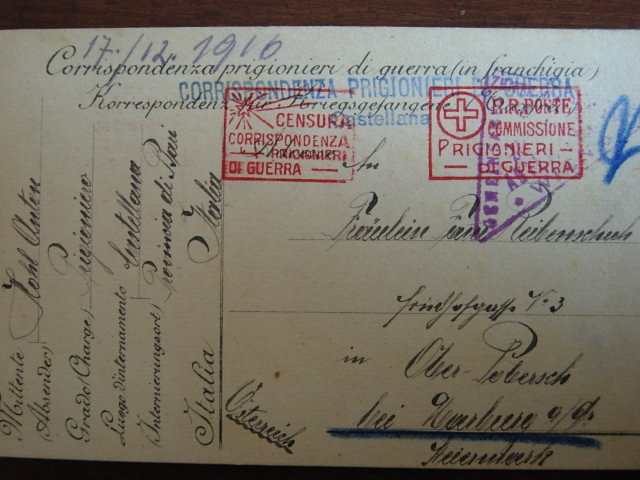 17./12. 1916
Corrispondenza prigionieri di guerra (in franchigia)
CORRISPONDENZA PRIGIONIERI DI GUERRA
Korrespondenz für Kriegsgefangene
Castellana
CENSURA
CORRISPONDENZA
PRIGIONIERI
DI GUERRA
R.R. POSTE
COMMISSIONE
PRIGIONIERI
DI GUERRA
An
Fräulein
Friedhofgasse No 3
in
Ober-Pobersch
bei Marburg a/D.
Steiermark
Österreich
Mittente
(Absender)
Kohl Anton
Grado (Charge)
Prigioniero
Luogo d'internamento
(Internierungsort)
Castellana
Provincia di Bari
Italia
Italia